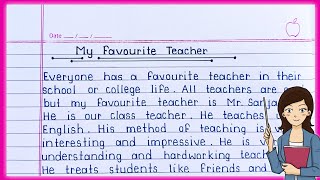 Date
My Favourite Teacher
Everyone has a favourite teacher in their
school or college life. All teachers are
but my favourite teacher is Mr. Sanja
He is our class teacher. He teaches
English. His method of teaching is
interesting and impressive. He is
understanding and hardworking teach
He treats students like friends and